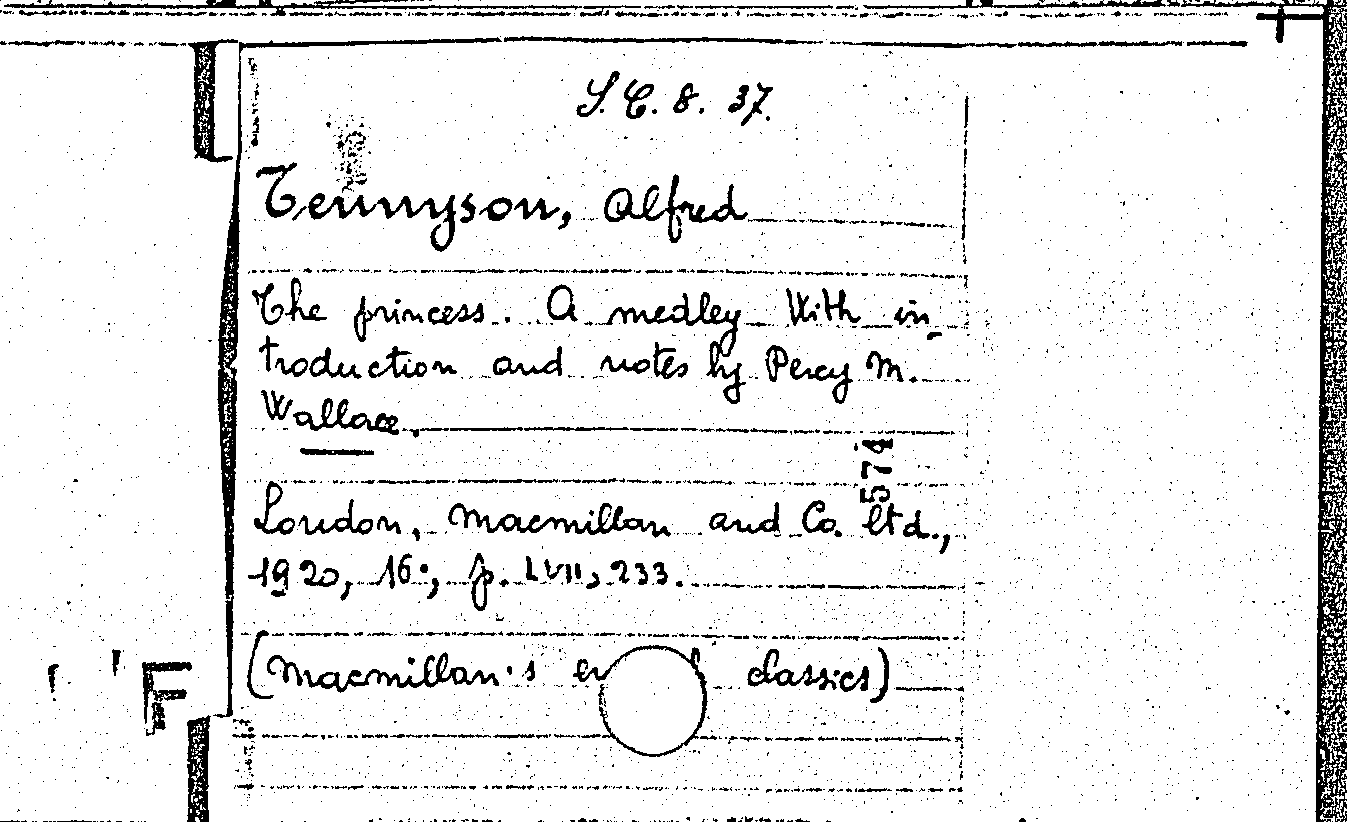 S.C. 8. 37.
Tennyson, Alfred
The princess. A medley With in-
troduction and notes by Percy M.
Wallace.
574
London, Macmillan and Co. ltd.,
1920, 16°, p. LVII, 233.
(Macmillan's classics)
F